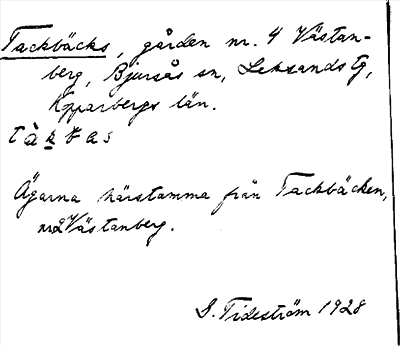 Tackbäcks, gården nr. 4 Västan-
berg, Bjursås sn, Leksands tg,
Kopparbergs län.
Ägarna härstamma från Tackbäcken,
nr2 Västanberg.
S. Tideström 1928